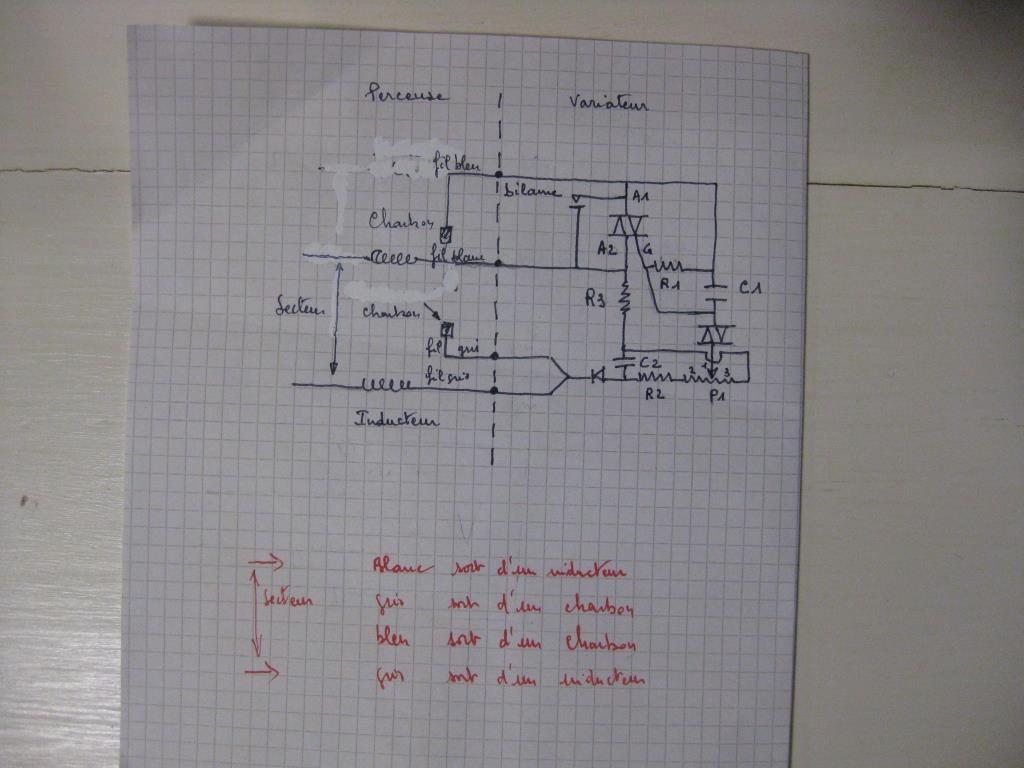 Perceuse
Variateur
fil bleu
bilame
A1
Charbon
A2
G
fil blanc
R1
C1
Secteur
R3
charbon
fil gris
C2
fil gris
2
1
3
R2
P1
Inducteur
Blanc sort d'un inducteur
Secteur
gris sort d'un charbon
bleu sort d'un charbon
gris sort d'un inducteur